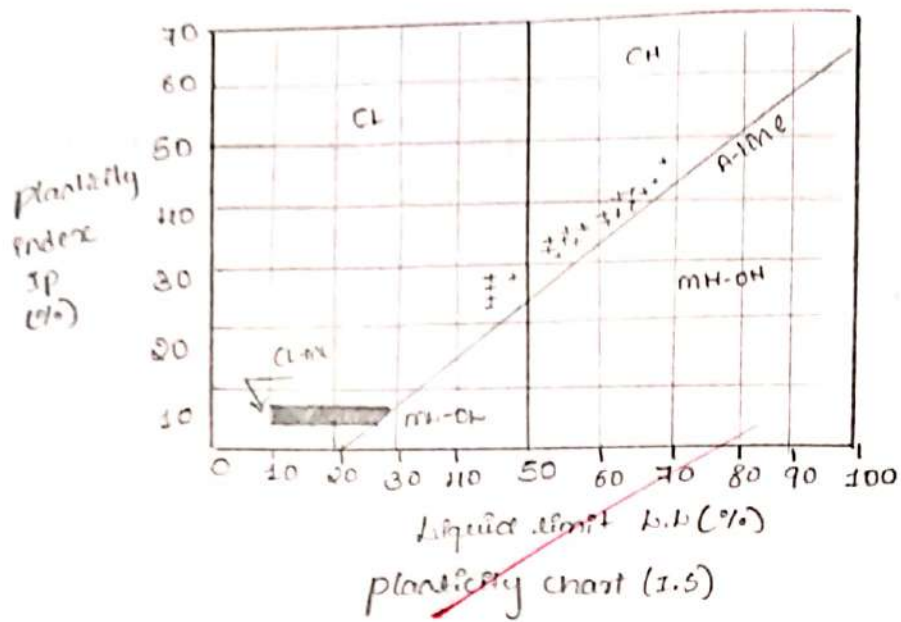 70
60
50
40
30
20
10
plasticity
index
Ip
(%)
CL
CH
A-line
MH-OH
CL-ML
ML-OL
0 10 20 30 40 50 60 70 80 90 100
Liquid limit L.L (%)
plasticity chart (I.S)